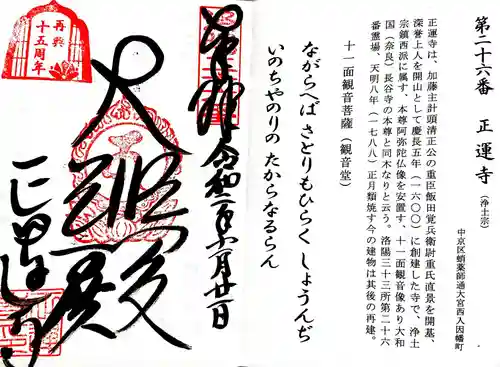 第二十六番　正運寺（浄土宗）
中京区蛸薬師通大宮西入因幡町
正運寺は、加藤主計頭清正公の重臣飯田覚兵衛尉重氏直景を開基、
深誉上人を開山として慶長五年（一六〇〇）に創建した寺で、浄土
宗鎮西派に属す、本尊阿弥陀仏像を安置す、十一面観音像あり大和
国（奈良）長谷寺の本尊と同木なりと云う。洛陽三十三所第二十六
番霊場、天明八年（一七八八）正月類焼す今の建物は其後の再建。
十一面観音菩薩（観音堂）
ながらへば さとりもひらく しょうんぢ
いのちやのりの たからなるらん
奉拝 令和二年六月廿一日
大悲殿
正運寺
再興
十五周年